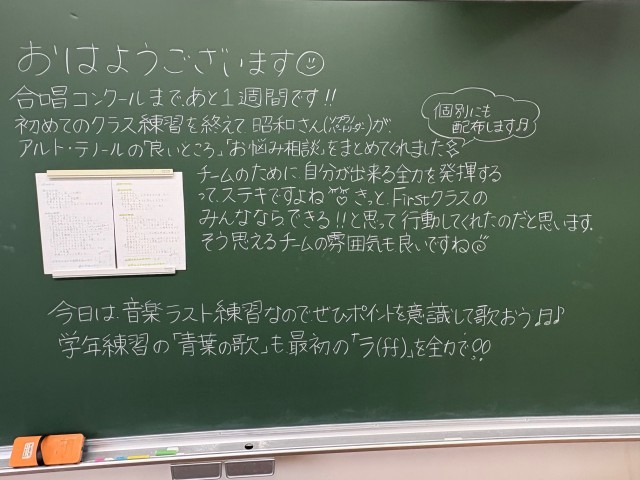 おはようございます☺
合唱コンクールまで、あと1週間です!!
初めてのクラス練習を終えて 昭和さん(ソプラノパートリーダー)が、
アルト・テノールの「良いところ」「お悩み相談」をまとめてくれました☆
個別にも
配布します♫
チームのために、自分が出来る全力を発揮する
って、ステキですよね きっと、Firstクラスの
みんなならできる!!と思って行動してくれたのだと思います。
そう思えるチームの雰囲気も良いですね
今日は、音楽ラスト練習なのでぜひポイントを意識して歌おう♫♪
学年練習の「青葉の歌」も最初の「ラ(ff)」を全力で!!